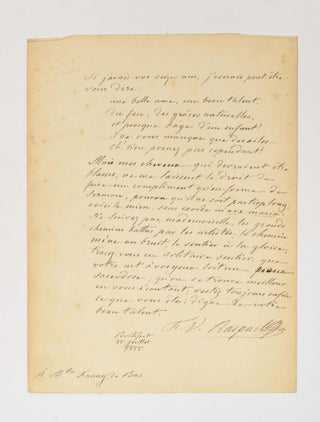 Si j'avais vos seize ans, j'oserais peut être
vous dire:
une belle ame, un beau talent,
du feu, des grâces naturelles,
et presque l'age d'un enfant!
Il ne vous manque que des ailes
oh n'en prenez pas cependant!
Mais mes cheveux qui devraient être
blancs, ne me laissent le droit de
faire un compliment qu'en forme de
sermon, pourvu qu'il ne soit pas trop long,
voici le mien, sans exorde ni ave maria.
Ne suivez pas, mademoiselle, les grands
chemins battus par les artistes. le chemin
mène au bruit le sentier à la gloire,
vous un solitaire sentier, que
votre art à vos yeux soit un
sacerdoce, qu'on se trouve meilleur
en vous écoutant, restez toujours enfin
ce que vous êtes: digne de votre
beau talent
F. V. Raspail
Boitsfort
15 juillet
1855.
À Mlle Fanny de Bas